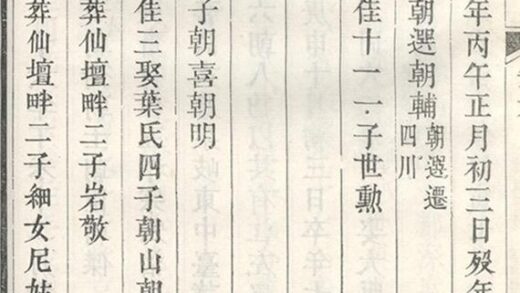 年丙午正月初三日歿年
朝選朝輔朝選遷四川
佳十一一·子世勲
子朝喜朝明
佳三娶葉氏四子朝山朝
葬仙壇畔二子岩敬
葬仙壇畔二子細女尼姑